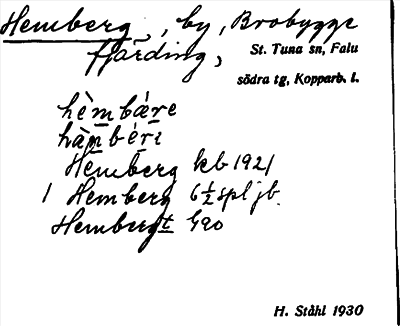 Hemberg, by, Brobygge
fjärding, St. Tuna sn, Falu
södra tg, Kopparb. l.
hèmbære
hàmbèri
Hemberg kb 1921
1 Hemberg 6½ spl jb.
Hembergt G90
H. Ståhl 1930